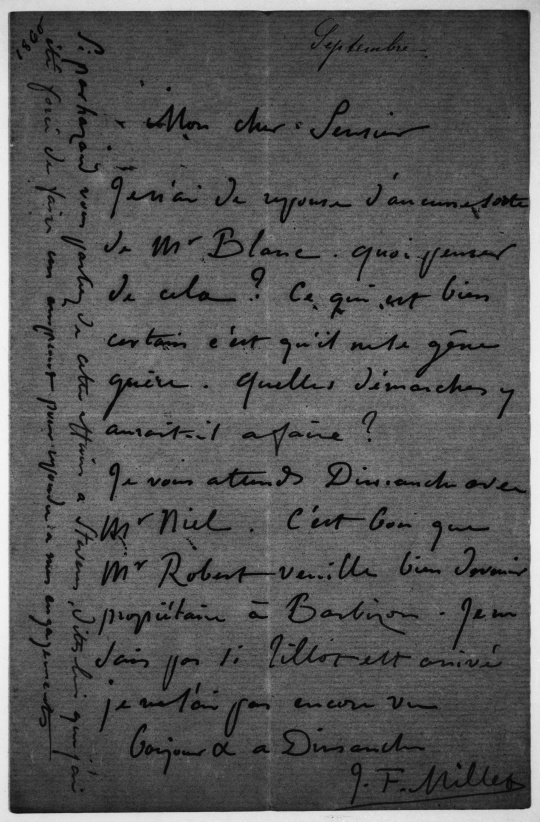 Septembre
Mon cher Sensier
Je n'ai de reponse d'aucune sorte
de Mr Blanc. quoi penser
de cela? Ce qui est bien
certain c'est qu'il ne se gêne
guère. Quelles démarches y
aurait-il a faire?
Je vous attends Dimanche avec
Mr Niel. C'est bon que
Mr Robert veuille bien devenir
propriétaire à Barbizon. Je ne
sais pas si Tillot est arrivé
je ne l'ai pas encore vu
Bonjour & a Dimanche
J. F. Millet
Si par hazard vous parlez de cette affaire a Stevens, dites lui que j'ai
été forcé de faire un emprunt pour repondre a mes engagements